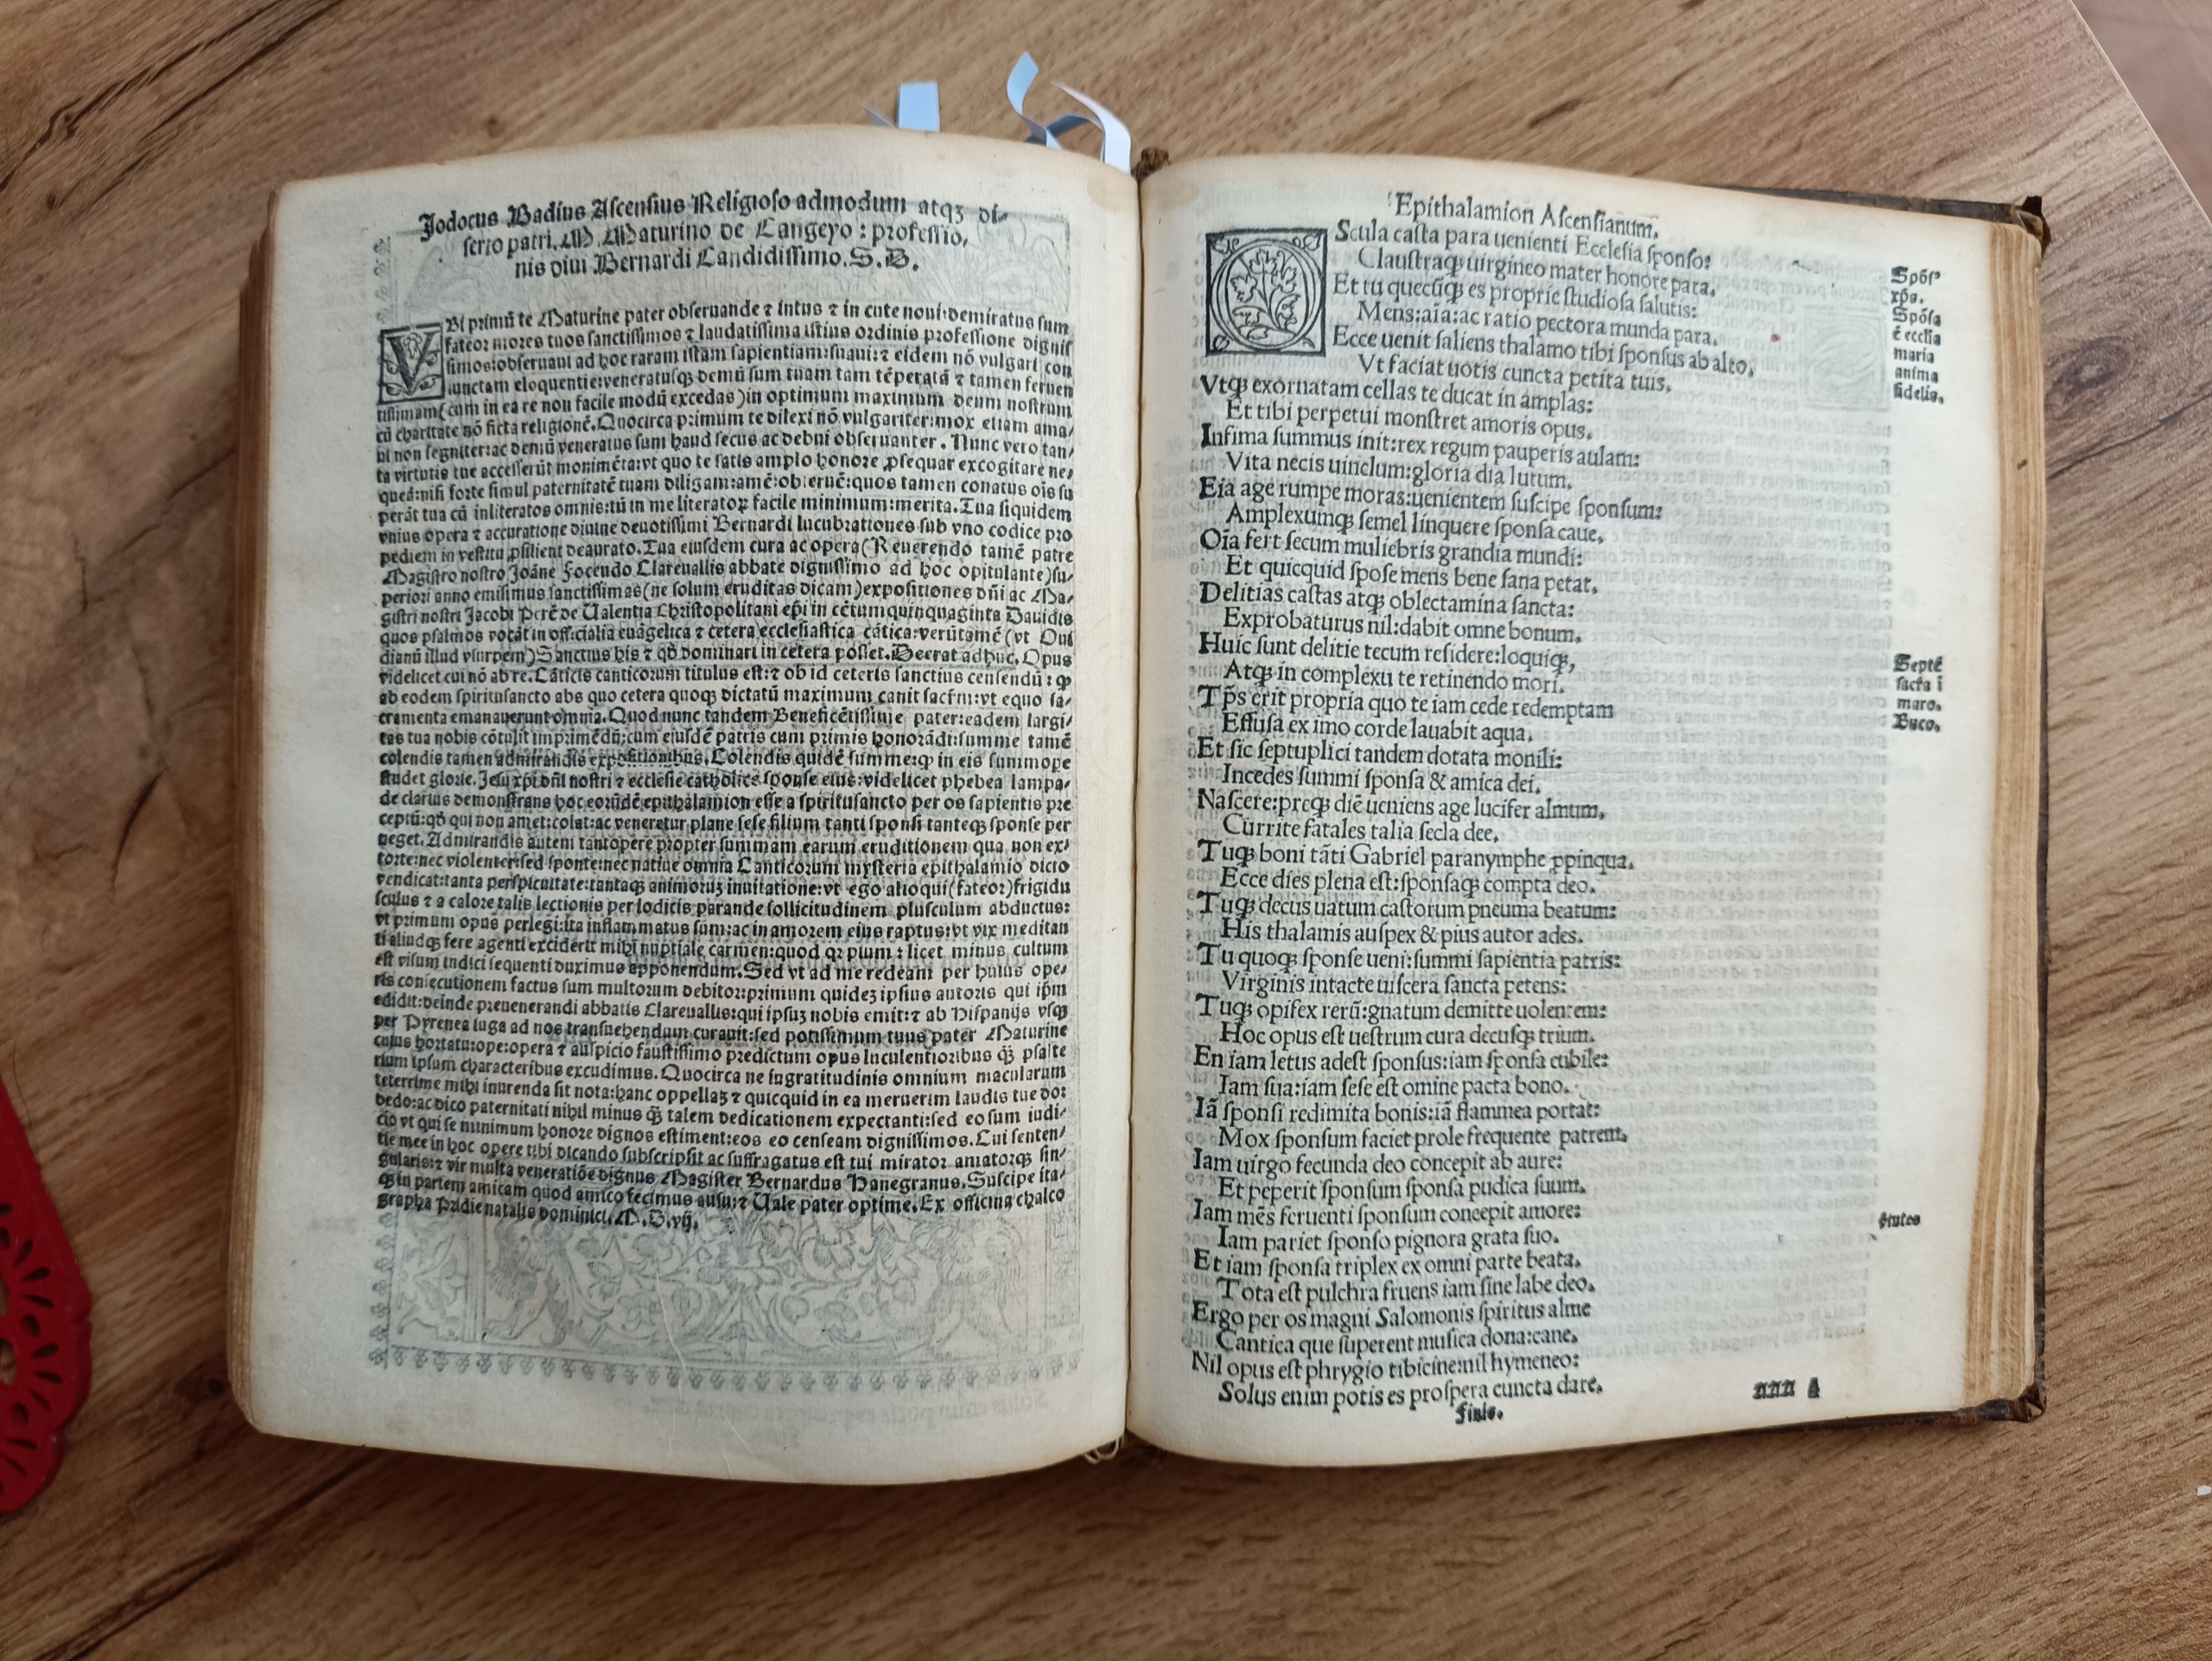 Jodocus Badius Ascensius Religioso admodum atqꝫ di-
serto patri. M. Maturino de Langeyo: professio,
nis diui Bernardi Candidissimo. S. D.
VBi primũ te Maturine pater obseruande ⁊ intus ⁊ in cute noui: demiratus sum
fateor mores tuos sanctissimos ⁊ laudatissima istius ordinis professione dignis
simos: obseruaui ad hoc raram istam sapientiam: suaui: ⁊ eidem nõ vulgari con
iunctam eloquentie: veneratusqꝫ demũ sum tuam tam tẽperatã ⁊ tamen feruen
tissimam (cum in ea re non facile modũ excedas) in optimum maximum deum nostrum
cũ charitate nõ ficta religionẽ. Quocirca primum te dilexi nõ vulgariter: mox etiam ama/
ui non segniter: ac demũ veneratus sum haud secus ac debui obseruanter. Nunc vero tan/
ta virtutis tue accesserũt monimẽta: vt quo te satis amplo honore ꝓsequar excogitare ne/
queã: nisi forte simul paternitatẽ tuam diligam: amẽ: obseruẽ: quos tamen conatus oĩs su
perãt tua cũ in literatos omnis: tũ in me literatoꝝ facile minimum: merita. Tua siquidem
vnius opera ⁊ accuratione diuine deuotissimi Bernardi lucubrationes sub vno codice pro
pediem in vestitu ꝓsilient deaurato. Tua eiusdem cura ac opera (Reuerendo tamẽ patre
Magistro nostro Joãne Foucudo Clareuallis abbate dignissimo ad hoc opitulante) su/
periori anno emisimus sanctissimas (ne solum eruditas dicam) expositiones dñi ac Ma/
gistri nostri Jacobi Perẽ de Valentia Christopolitani epĩ in cẽtum quinquaginta Dauidis
quos psalmos vocãt in officialia euãgelica ⁊ cetera ecclesiastica cãtica: verũtamẽ (vt Oui
dianũ illud vsurpem) Sanctius his ⁊ qđ dominari in cetera posset. Deerat adhuc. Opus
videlicet cui nõ ab re. Cãticis canticorum titulus est: ⁊ ob id ceteris sanctius censendũ: ꝙ
ab eodem spiritusancto abs quo cetera quoqꝫ dictatũ maximum canit sacrm: vt equo sa/
cramenta emanauerunt omnia. Quod nunc tandem Beneficẽtissime pater: eadem largi/
tas tua nobis cõtulit imprimẽdũ: cum eiusdẽ patris cum primis honorãdi: summe tamẽ
colendis tamen admirandis expositionibus. Colendis quidẽ summe: ꝙ in eis summope
studet glorie. Jesu xp̃i dñi nostri ⁊ ecclesie catholice sponse eius: videlicet phebea lampa/
de clarius demonstrans hoc eorũdẽ epithalamion esse a spiritusancto per os sapientis pre
ceptũ: qđ qui non amet: colat: ac veneretur plane sese filium tanti sponsi tanteqꝫ sponse per
neget. Admirandis autem tantopere propter summam earum eruditionem qua non ex/
torte: nec violenter: sed sponte: nec natiue omnia Canticorum mysteria epithalamio dicto
vendicat: tanta perspicuitate: tantaqꝫ animoruꝫ inuitatione: vt ego alioqui (fateor) frigidu
sculus ⁊ a calore talis lectionis per lodicis parande sollicitudinem plusculum abductus:
vt primum opus perlegi: ita inflammatus sum: ac in amorem eius raptus: vt vix meditan
ti aliudqꝫ fere agenti exciderit mihi nuptiale carmen: quod qꝛ pium: licet minus cultum
est visum indici sequenti duximus apponendum. Sed vt ad me redeam per huius ope/
ris consecutionem factus sum multorum debitor: primum quideꝫ ipsius autoris qui ipm̃
edidit: deinde preuenerandi abbatis Clareuallis: qui ipsuꝫ nobis emit: ⁊ ab Hispanijs vsqꝫ
per Pyrenea iuga ad nos transuehendum curauit: sed potissimum tuus pater Maturine
cuius hortatu: ope: opera ⁊ auspicio faustissimo predictum opus luculentioribus q̃ꝫ psalte
rium ipsum characteribus excudimus. Quocirca ne ingratitudinis omnium macularum
teterrime mihi inurenda sit nota: hanc oppellaꝫ ⁊ quicquid in ea meruerim laudis tue do:
dedo: ac dico paternitati nihil minus q̃ꝫ talem dedicationem expectanti: sed eo sum iudi/
cio vt qui se nunimum honore dignos estiment: eos eo censeam dignissimos. Cui senten/
tie mee in hoc opere tibi dicando subscripsit ac suffragatus est tui mirator amatorqꝫ sin/
gularis: ⁊ vir multa veneratiõe dignus Magister Bernardus Hanegranus. Suscipe ita/
qꝫ in partem amicam quod amico fecimus ausu: ⁊ Vale pater optime. Ex officina chalco
grapha Pridie natalis dominici. M. D. vij.
Epithalamion Ascensianum.
OScula casta para uenienti Ecclesia sponso:
Claustraqꝫ uirgineo mater honore para.
Et tu quecũqꝫ es proprie studiosa salutis:
Mens: aĩa: ac ratio pectora munda para.
Ecce uenit saliens thalamo tibi sponsus ab alto,
Vt faciat uotis cuncta petita tuis.
Vtqꝫ exornatam cellas te ducat in amplas:
Et tibi perpetui monstret amoris opus.
Infima summus init: rex regum pauperis aulam:
Vita necis uinclum: gloria dia lutum.
Eia age rumpe moras: uenientem suscipe sponsum:
Amplexumqꝫ semel linquere sponsa caue.
Oĩa fert secum muliebris grandia mundi:
Et quicquid spose mens bene sana petat.
Delitias castas atqꝫ oblectamina sancta:
Exprobaturus nil: dabit omne bonum.
Huic sunt delitie tecum residere: loquiqꝫ,
Atqꝫ in complexu te retinendo mori.
Tp̃s erit propria quo te iam cede redemptam
Effusa ex imo corde lauabit aqua.
Et sic septuplici tandem dotata monili:
Incedes summi sponsa & amica dei.
Nascere: preqꝫ diẽ ueniens age lucifer almum,
Currite fatales talia secla dee.
Tuqꝫ boni tãti Gabriel paranymphe ꝓpinqua.
Ecce dies plena est: sponsaqꝫ compta deo.
Tuqꝫ decus uatum castorum pneuma beatum:
His thalamis auspex & pius autor ades.
Tu quoqꝫ sponse ueni: summi sapientia patris:
Virginis intacte uiscera sancta petens:
Tuqꝫ opifex rerũ: gnatum demitte uolentem:
Hoc opus est uestrum cura decusqꝫ trium.
En iam letus adest sponsus: iam sponsa cubile:
Iam sua: iam sese est omine pacta bono.
Iã sponsi redimita bonis: iã flammea portat:
Mox sponsum faciet prole frequente patrem.
Iam uirgo fecunda deo concepit ab aure:
Et peperit sponsum sponsa pudica suum.
Iam mẽs feruenti sponsum concepit amore:
Iam pariet sponso pignora grata suo.
Et iam sponsa triplex ex omni parte beata.
Tota est pulchra fruens iam sine labe deo.
Ergo per os magni Salomonis spiritus alme
Cantica que superent musica dona: cane.
Nil opus est phrygio tibicine: nil hymeneo:
Solus enim potis es prospera cuncta dare.
Finis.
Spõsꝰ
xp̃s.
Spõsa
ẽ ecclia
maria
anima
fidelis.
Septẽ
sacra ĩ
maro.
Buco.